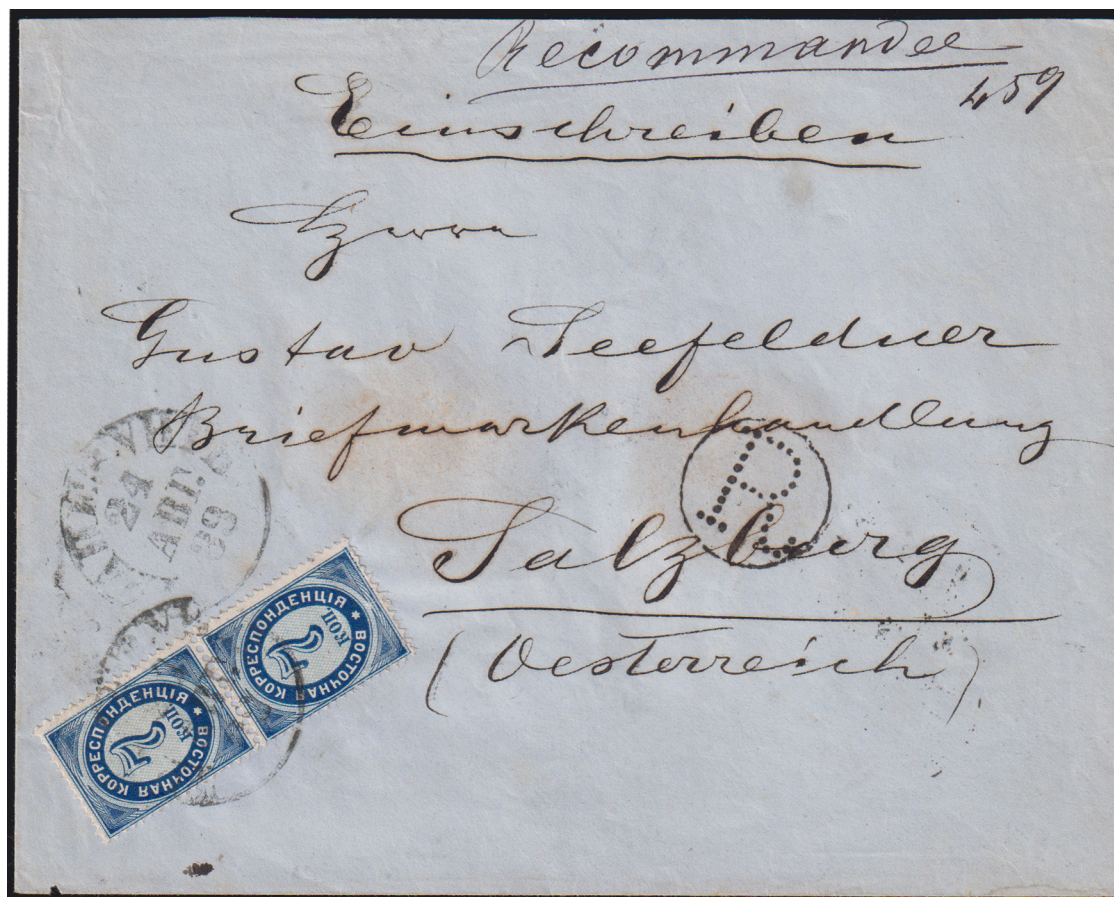 Recommandee
459
Einschreiben
Herrn
Gustav Seefeldner
Briefmarkenhandlung
R
Salzburg
(Oesterreich)
24
АВГ.
ВОСТОЧНАЯ КОРРЕСПОНДЕНЦІЯ
7
КОП
ВОСТОЧНАЯ КОРРЕСПОНДЕНЦІЯ
7
КОП